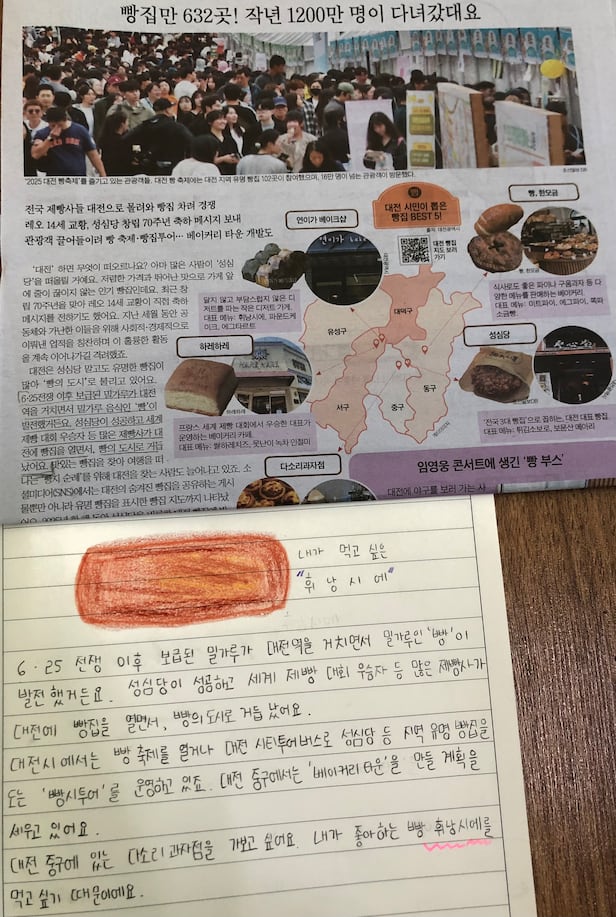 빵집만 632곳! 작년 1200만 명이 다녀갔대요
'2025 대전 빵축제'를 즐기고 있는 관광객들. 대전 빵 축제에는 대전 지역 유명 빵집 102곳이 참여했으며, 16만 명이 넘는 관광객이 방문했다.
조선일보DB
전국 제빵사들 대전으로 몰려와 빵집 차려 경쟁
레오 14세 교황, 성심당 창립 70주년 축하 메시지 보내
관광객 끌어들이려 빵 축제·빵집투어… 베이커리 타운 개발도
'대전' 하면 무엇이 떠오르나요? 아마 많은 사람이 '성심
당'을 떠올릴 거예요. 저렴한 가격과 뛰어난 맛으로 가게 앞
에 줄이 끊이지 않는 인기 빵집인데요. 최근 창
립 70주년을 맞아 레오 14세 교황이 직접 축하
메시지를 전하기도 했어요. 지난 세월 동안 공
동체와 가난한 이들을 위해 사회적·경제적으로
이뤄낸 업적을 칭찬하며 이 훌륭한 활동
을 계속 이어나가길 격려했죠.
대전은 성심당 말고도 유명한 빵집이
많아 '빵의 도시'로 불리고 있어요.
6·25전쟁 이후 보급된 밀가루가 대전
역을 거치면서 밀가루 음식인 '빵'이
발전했거든요. 성심당이 성공하고 세계
제빵 대회 우승자 등 많은 제빵사가 대
전에 빵집을 열면서, 빵의 도시로 거듭
났어요. 맛있는 빵집을 찾아 여행을 떠
나는 '빵지 순례'를 위해 대전을 찾는 사람도 늘어나고 있죠. 소
셜미디어(SNS)에서는 대전의 숨겨진 빵집을 공유하는 게시
물뿐만 아니라 유명 빵집을 표시한 빵집 지도까지 나타났
빵
대전 시민이 뽑은
빵집 BEST 5!
출처: 대전광역시
대전 빵집
지도 보러
가기
연이가 베이크샵
달지 않고 부담스럽지 않은 디
저트를 파는 작은 디저트 가게.
대표 메뉴: 휘낭시에, 파운드케
이크, 에그타르트
빵, 한모금
빵, 한모금
식사로도 좋은 파이나 구움과자 등 다
양한 메뉴를 판매하는 베이커리
대표 메뉴: 미트파이, 에그파이, 쪽파
소금빵
유성구
대덕구
서구
중구
동구
하레하레
하레하레
프랑스 세계 제빵 대회에서 우승한 대표가
운영하는 베이커리 카페
대표 메뉴: 쌀하레치즈, 못난이 녹차 인절미
성심당
'전국 3대 빵집'으로 꼽히는, 대전 대표 빵집.
대표 메뉴: 튀김소보로, 보문산 메아리
다소리과자점
임영웅 콘서트에 생긴 '빵 부스'
대전에 야구를 보러 가는 사
내가 먹고 싶은
"휘낭시에"
6·25 전쟁 이후 보급된 밀가루가 대전역을 거치면서 밀가루인 '빵'이
발전했거든요. 성심당이 성공하고 세계 제빵 대회 우승자 등 많은 제빵사가
대전에 빵집을 열면서, 빵의 도시로 거듭 났어요.
대전시에서는 빵 축제를 열거나 대전 시티투어버스로 성심당 등 지역 유명 빵집을
도는 '빵시투어'를 운영하고 있죠. 대전 중구에서는 '베이커리 타운'을 만들 계획을
세우고 있어요.
대전 중구에 있는 다소리과자점을 가보고 싶어요. 내가 좋아하는 빵 휘낭시에를
먹고 싶기 때문이에요.